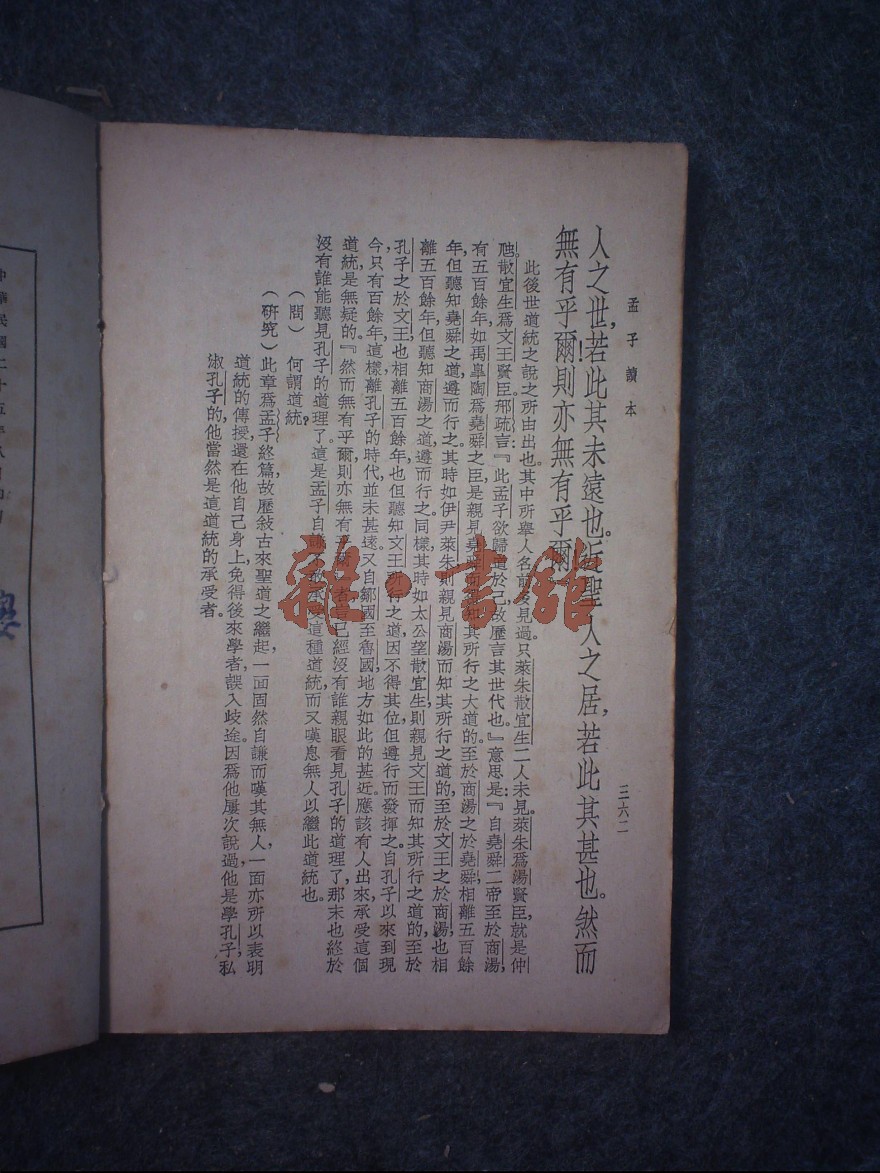 孟子讀本
三六二
人之世,若此其未遠也。近聖人之居,若此其甚也。然而
無有乎爾!則亦無有乎爾!
此後世道統之說之所由出也。其中所舉人名前多見過,只萊朱散宜生二人未見。萊朱爲湯賢臣,就是仲
虺。散宜生爲文王賢臣。邢疏言:『此孟子欲歸道於己,故歷言其世代也。』意思是:『自堯舜二帝至於商湯,
有五百餘年,如禹皐陶爲堯舜之臣,是親見堯舜而知其所行之大道的。至於商湯之於堯舜,相離五百餘
年,但聽知堯舜之道,遵而行之。其時如伊尹萊朱則親見商湯而知其所行之道的。至於文王之於商湯,也相
離五百餘年,但聽知商湯之道,遵而行之。同樣,其時如太公望散宜生,則親見文王而知其所行之道的。至於
孔子之於文王,也相離五百餘年,也但聽知文王所行之道,因不得其位,但遵行而發揮之。自孔子以來到現
今,只有百餘年,這樣離孔子的時代,並未甚遠。又自鄒國至魯國,地方如此的甚近,應該有人出來,承受這個
道統,是無疑的。『然而無有乎爾,則亦無有乎爾』者,言已經沒有誰親眼看見孔子的道理了,那末也終於
沒有誰能聽見孔子的道理了。這是孟子自謙不敢承受這種道統,而又嘆息無人以繼此道統也。
(問) 何謂道統?
(研究)此章爲孟子終篇,故歷敘古來聖道之繼起,一面固然自謙而嘆其無人,一面亦所以表明
道統的傳授還在他自己身上,免得後來學者誤入歧途。因爲他屢次說過,他是學孔子,私
淑孔子的,他當然是這道統的承受者。
中華民國二十五年八月
雜·書館